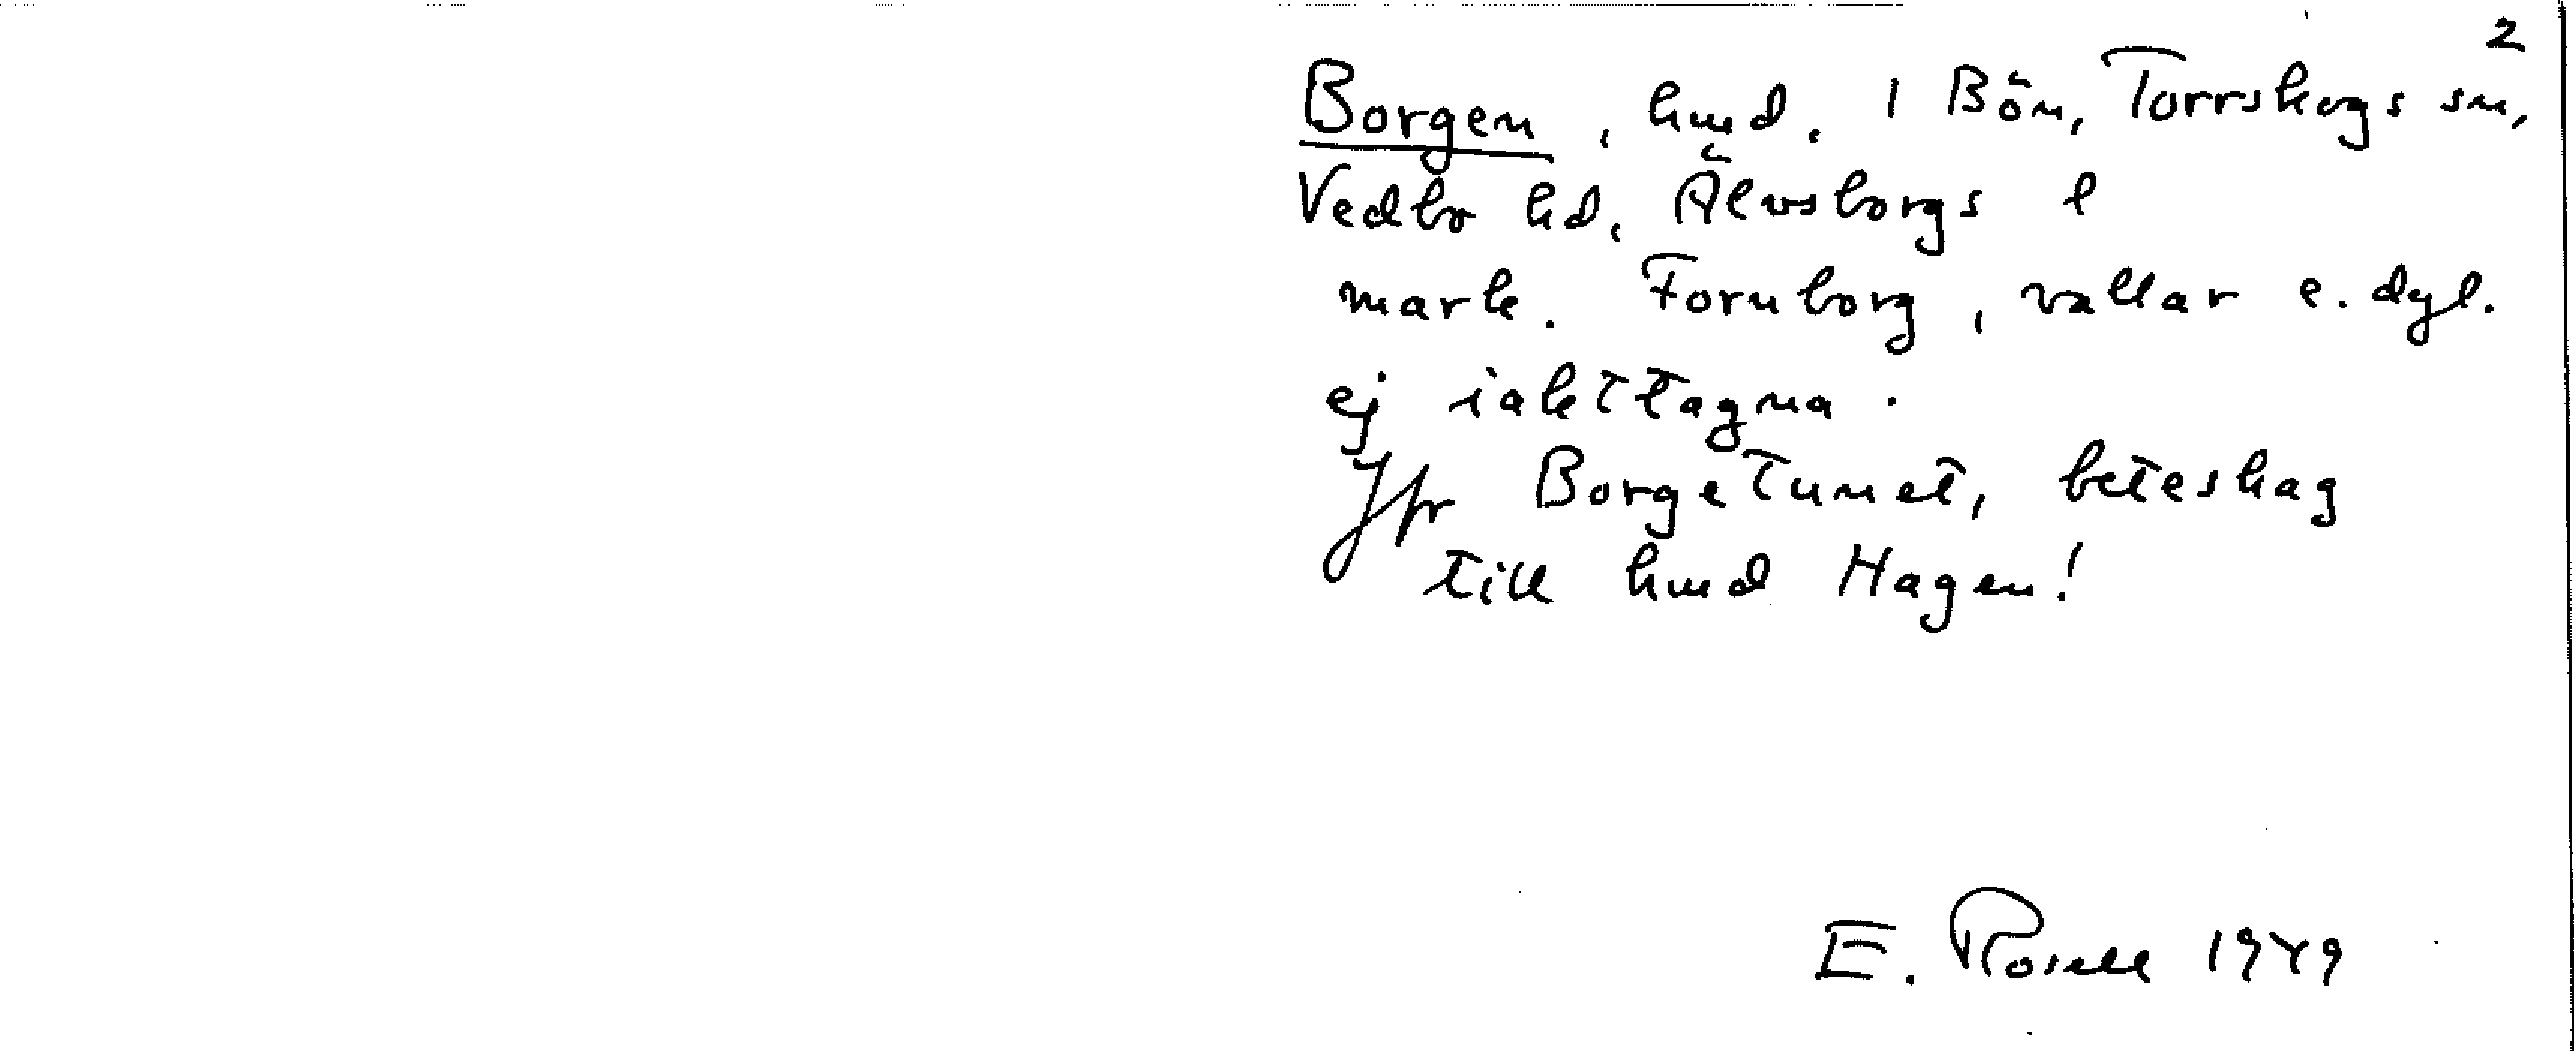 2
Borgen, hmd. 1 Bön, Torrskogs sn,
Vedbo hd, Älvsborgs l
mark. Fornborg, vallar e. dyl.
ej iakttagna.
Jfr Borgetunet, beteshag
till hmd Hagen!
E. Rosell 1949